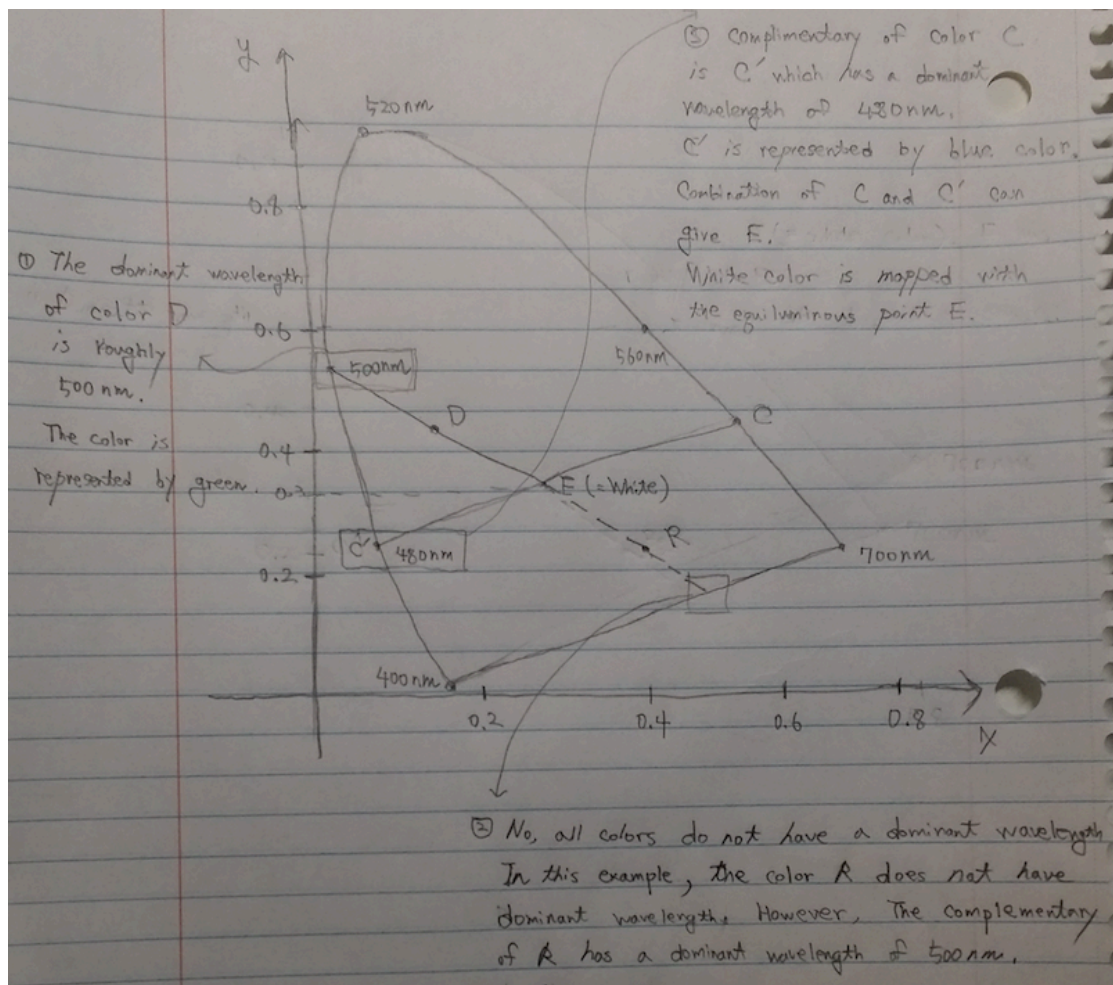 ③ Complimentary of color C
is C' which has a dominant
wavelength of 480nm.
C' is represented by blue color.
Combination of C and C' can
give E.
White color is mapped with
the equiluminous point E.
y
520nm
0.8
① The dominant wavelength
of color D
is roughly
500nm.
The color is
represented by green.
0.6
560nm
500nm
D
C
0.4
0.3
E (=White)
C' 480nm
R
700nm
0.2
400nm
0.2 0.4 0.6 0.8
X
② No, all colors do not have a dominant wavelength
In this example, the color R does not have
dominant wavelength. However, The complementary
of R has a dominant wavelength of 500nm.